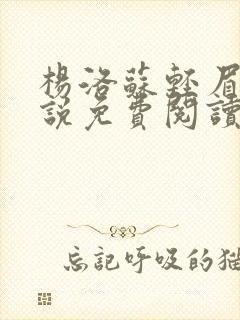 楊洛蘇輕眉
說免費閱讀
忘記呼吸的猫